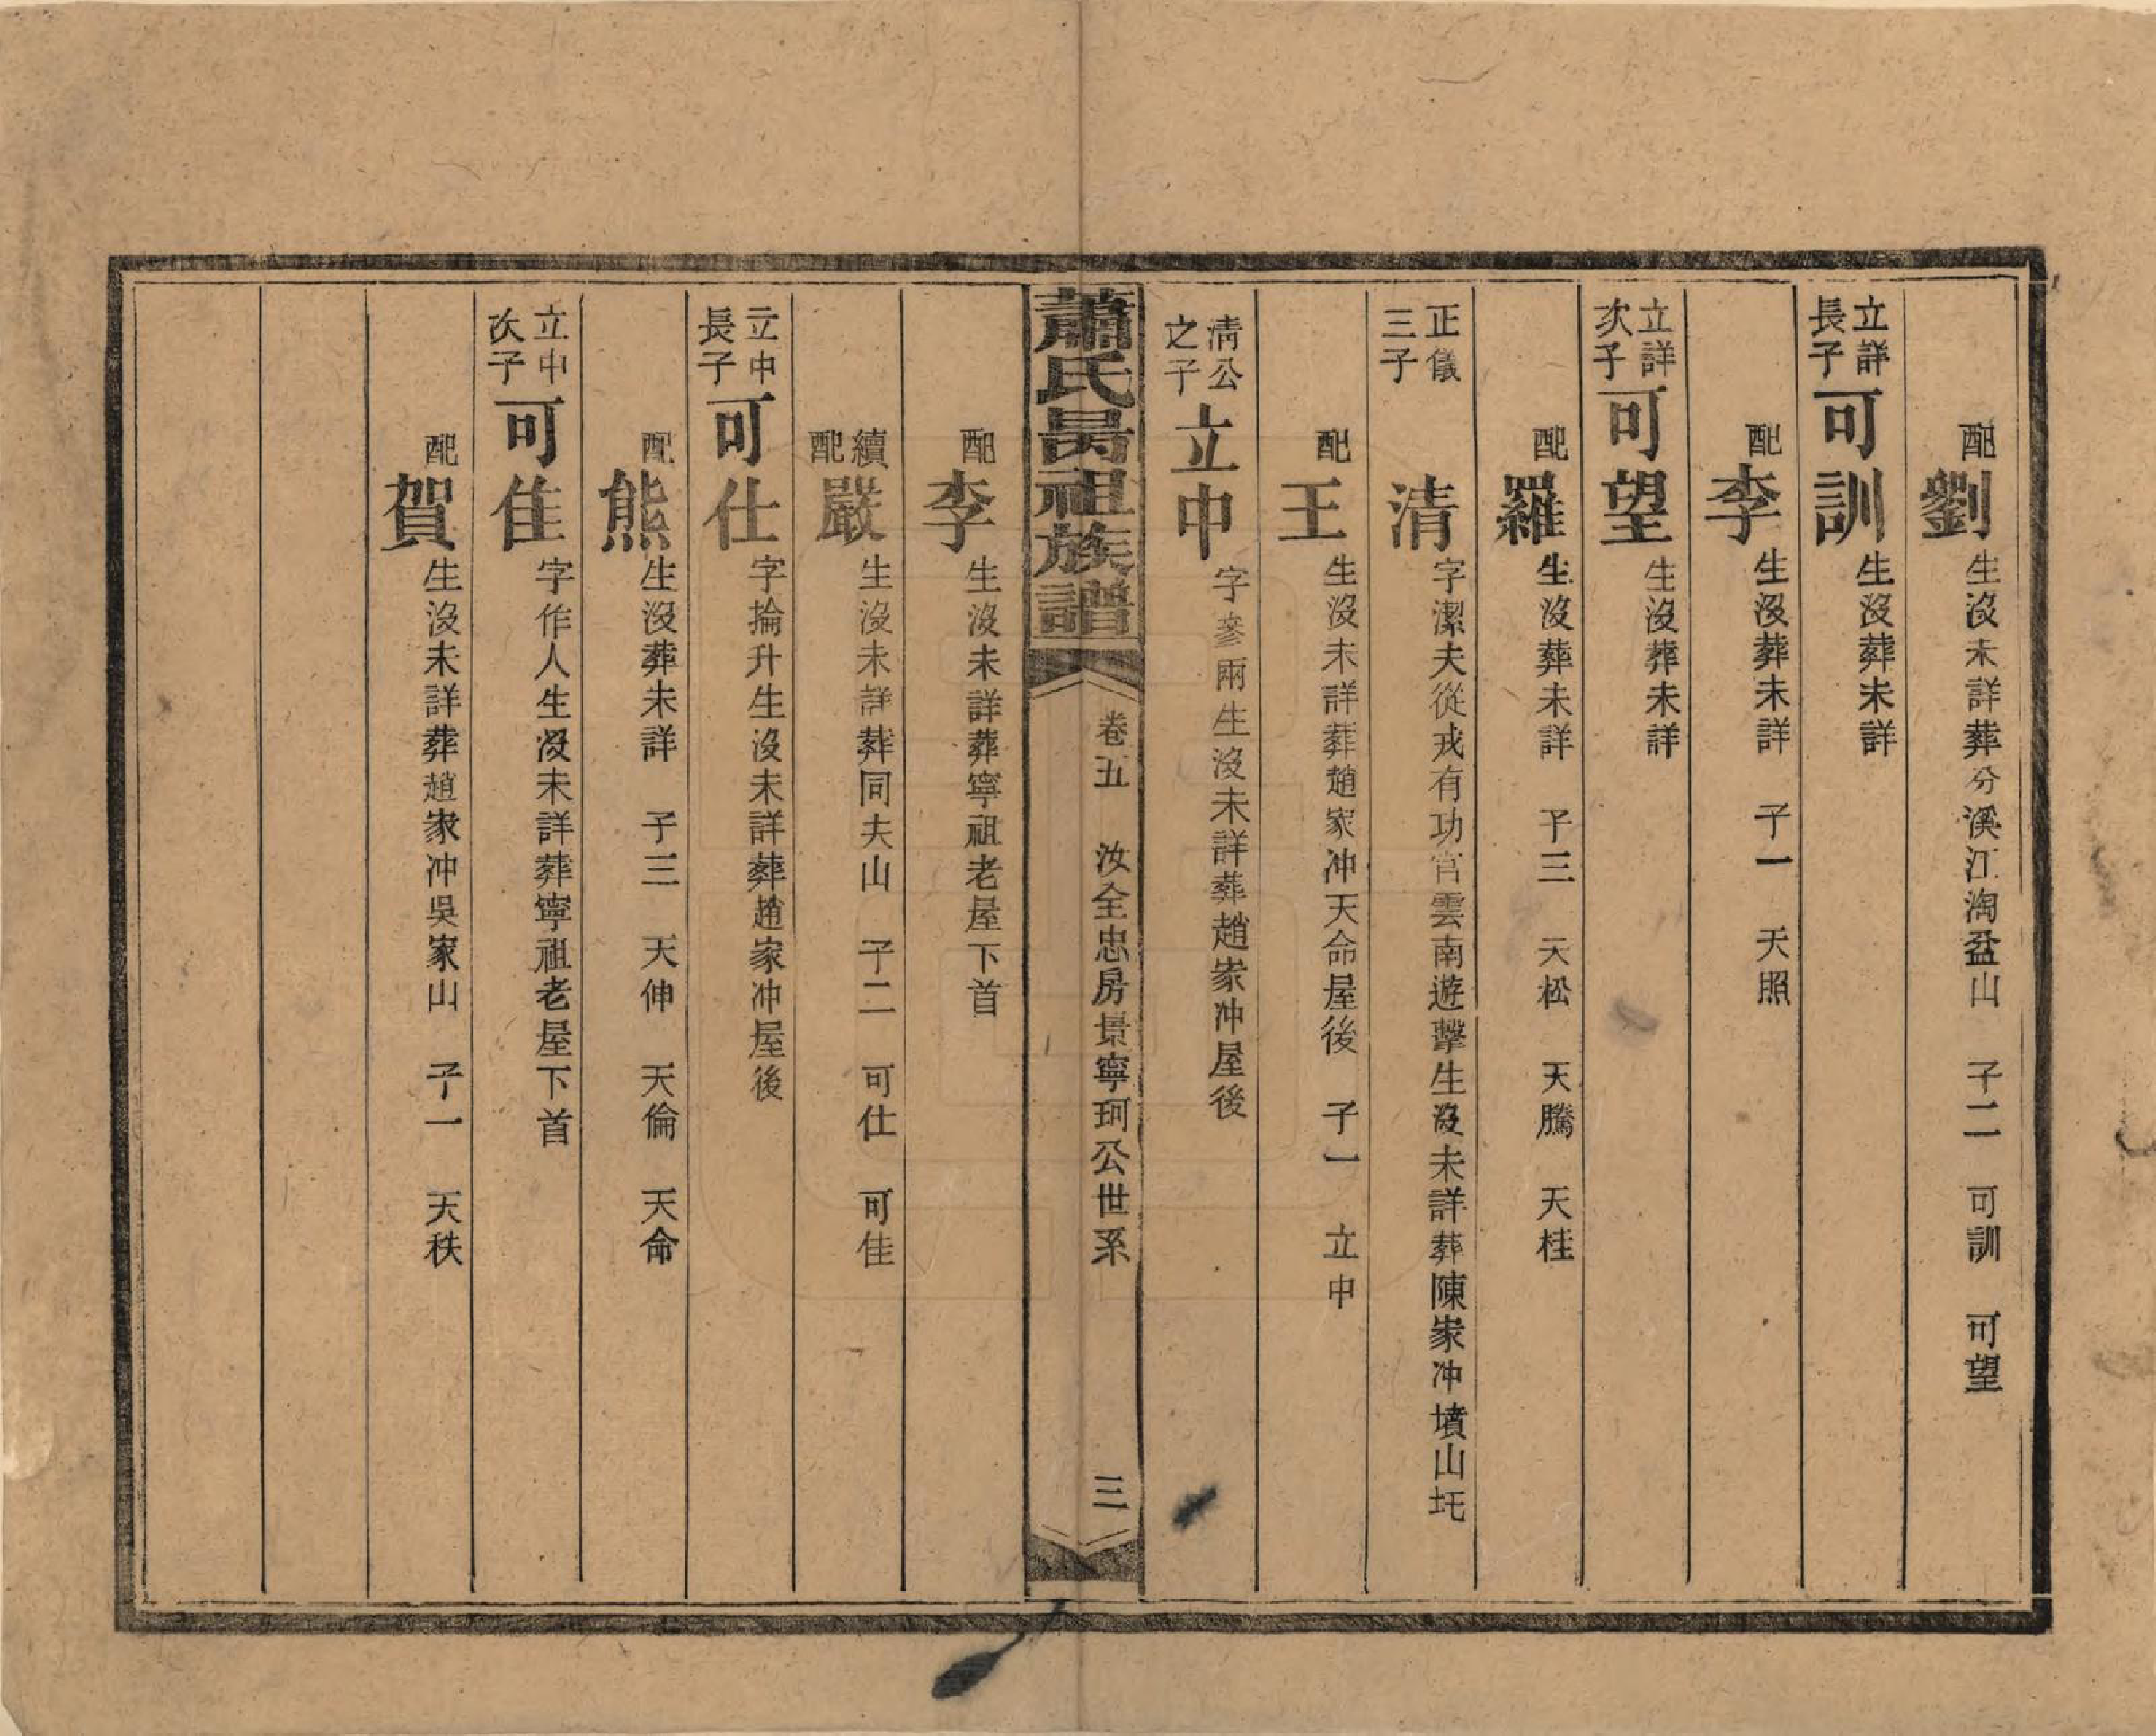 配劉生沒未詳葬分溪江淘盆山 子二 可訓 可望
立詳長子可訓生沒葬未詳
配李生沒葬未詳 子一 天照
立詳次子可望生沒葬未詳
配羅生沒葬未詳 子三 天松 天騰 天桂
正儀三子清字潔夫從戎有功官雲南遊擊生沒未詳葬陳家冲墳山圫
配王生沒未詳葬趙家冲天命屋後 子一 立中
清公之子立中字參兩生沒未詳葬趙家冲屋後
蕭氏昺祖族譜 卷五 汝全忠房景寧珂公世系 三
配李生沒未詳葬寧祖老屋下首
續配嚴生沒未詳葬同夫山 子二 可仕 可佳
立中長子可仕字掄升生沒未詳葬趙家冲屋後
配熊生沒葬未詳 子三 天伸 天倫 天命
立中次子可佳字作人生沒未詳葬寧祖老屋下首
配賀生沒未詳葬趙家冲吳家山 子一 天秩